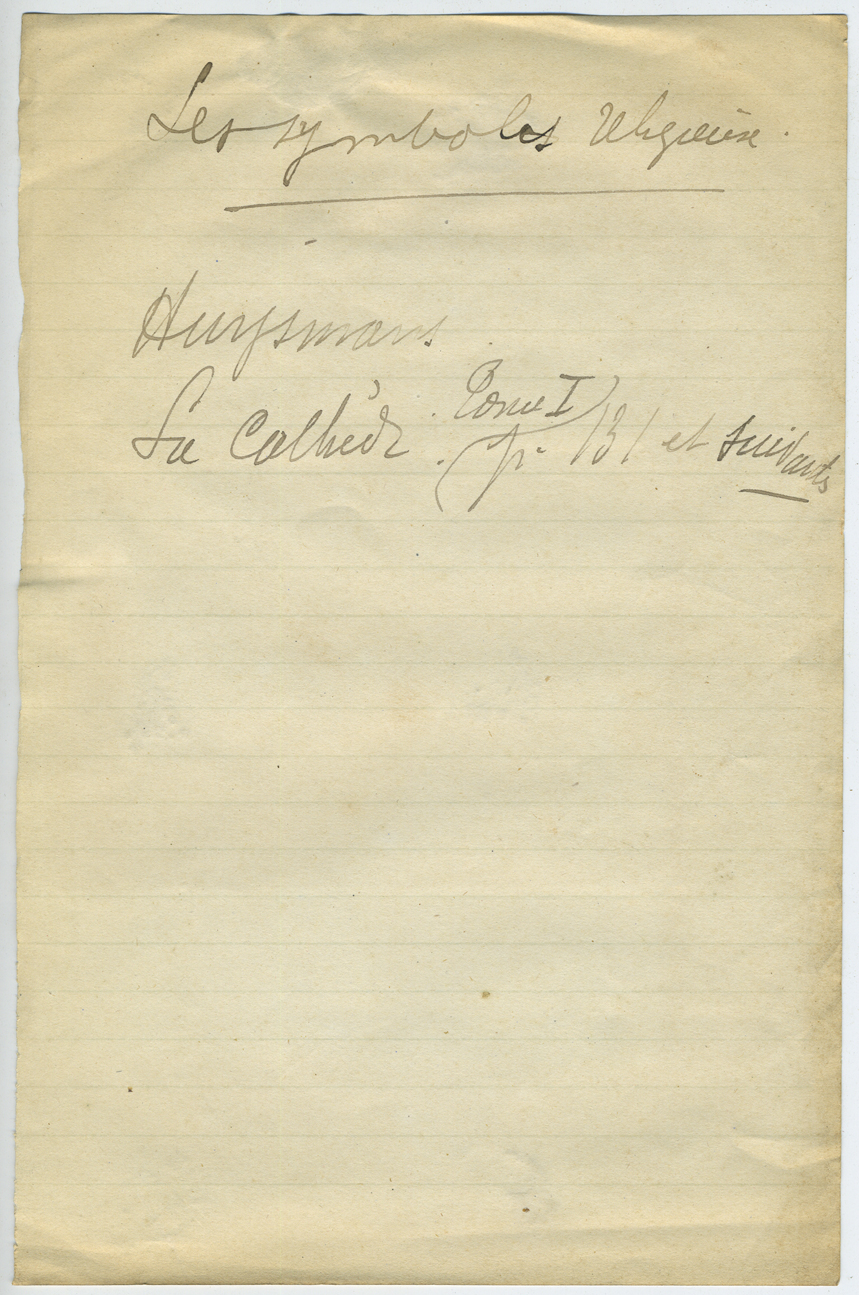 Les symboles religieux.
Huysmans
La Cathédr. Tome I
(p. 131 et suivants